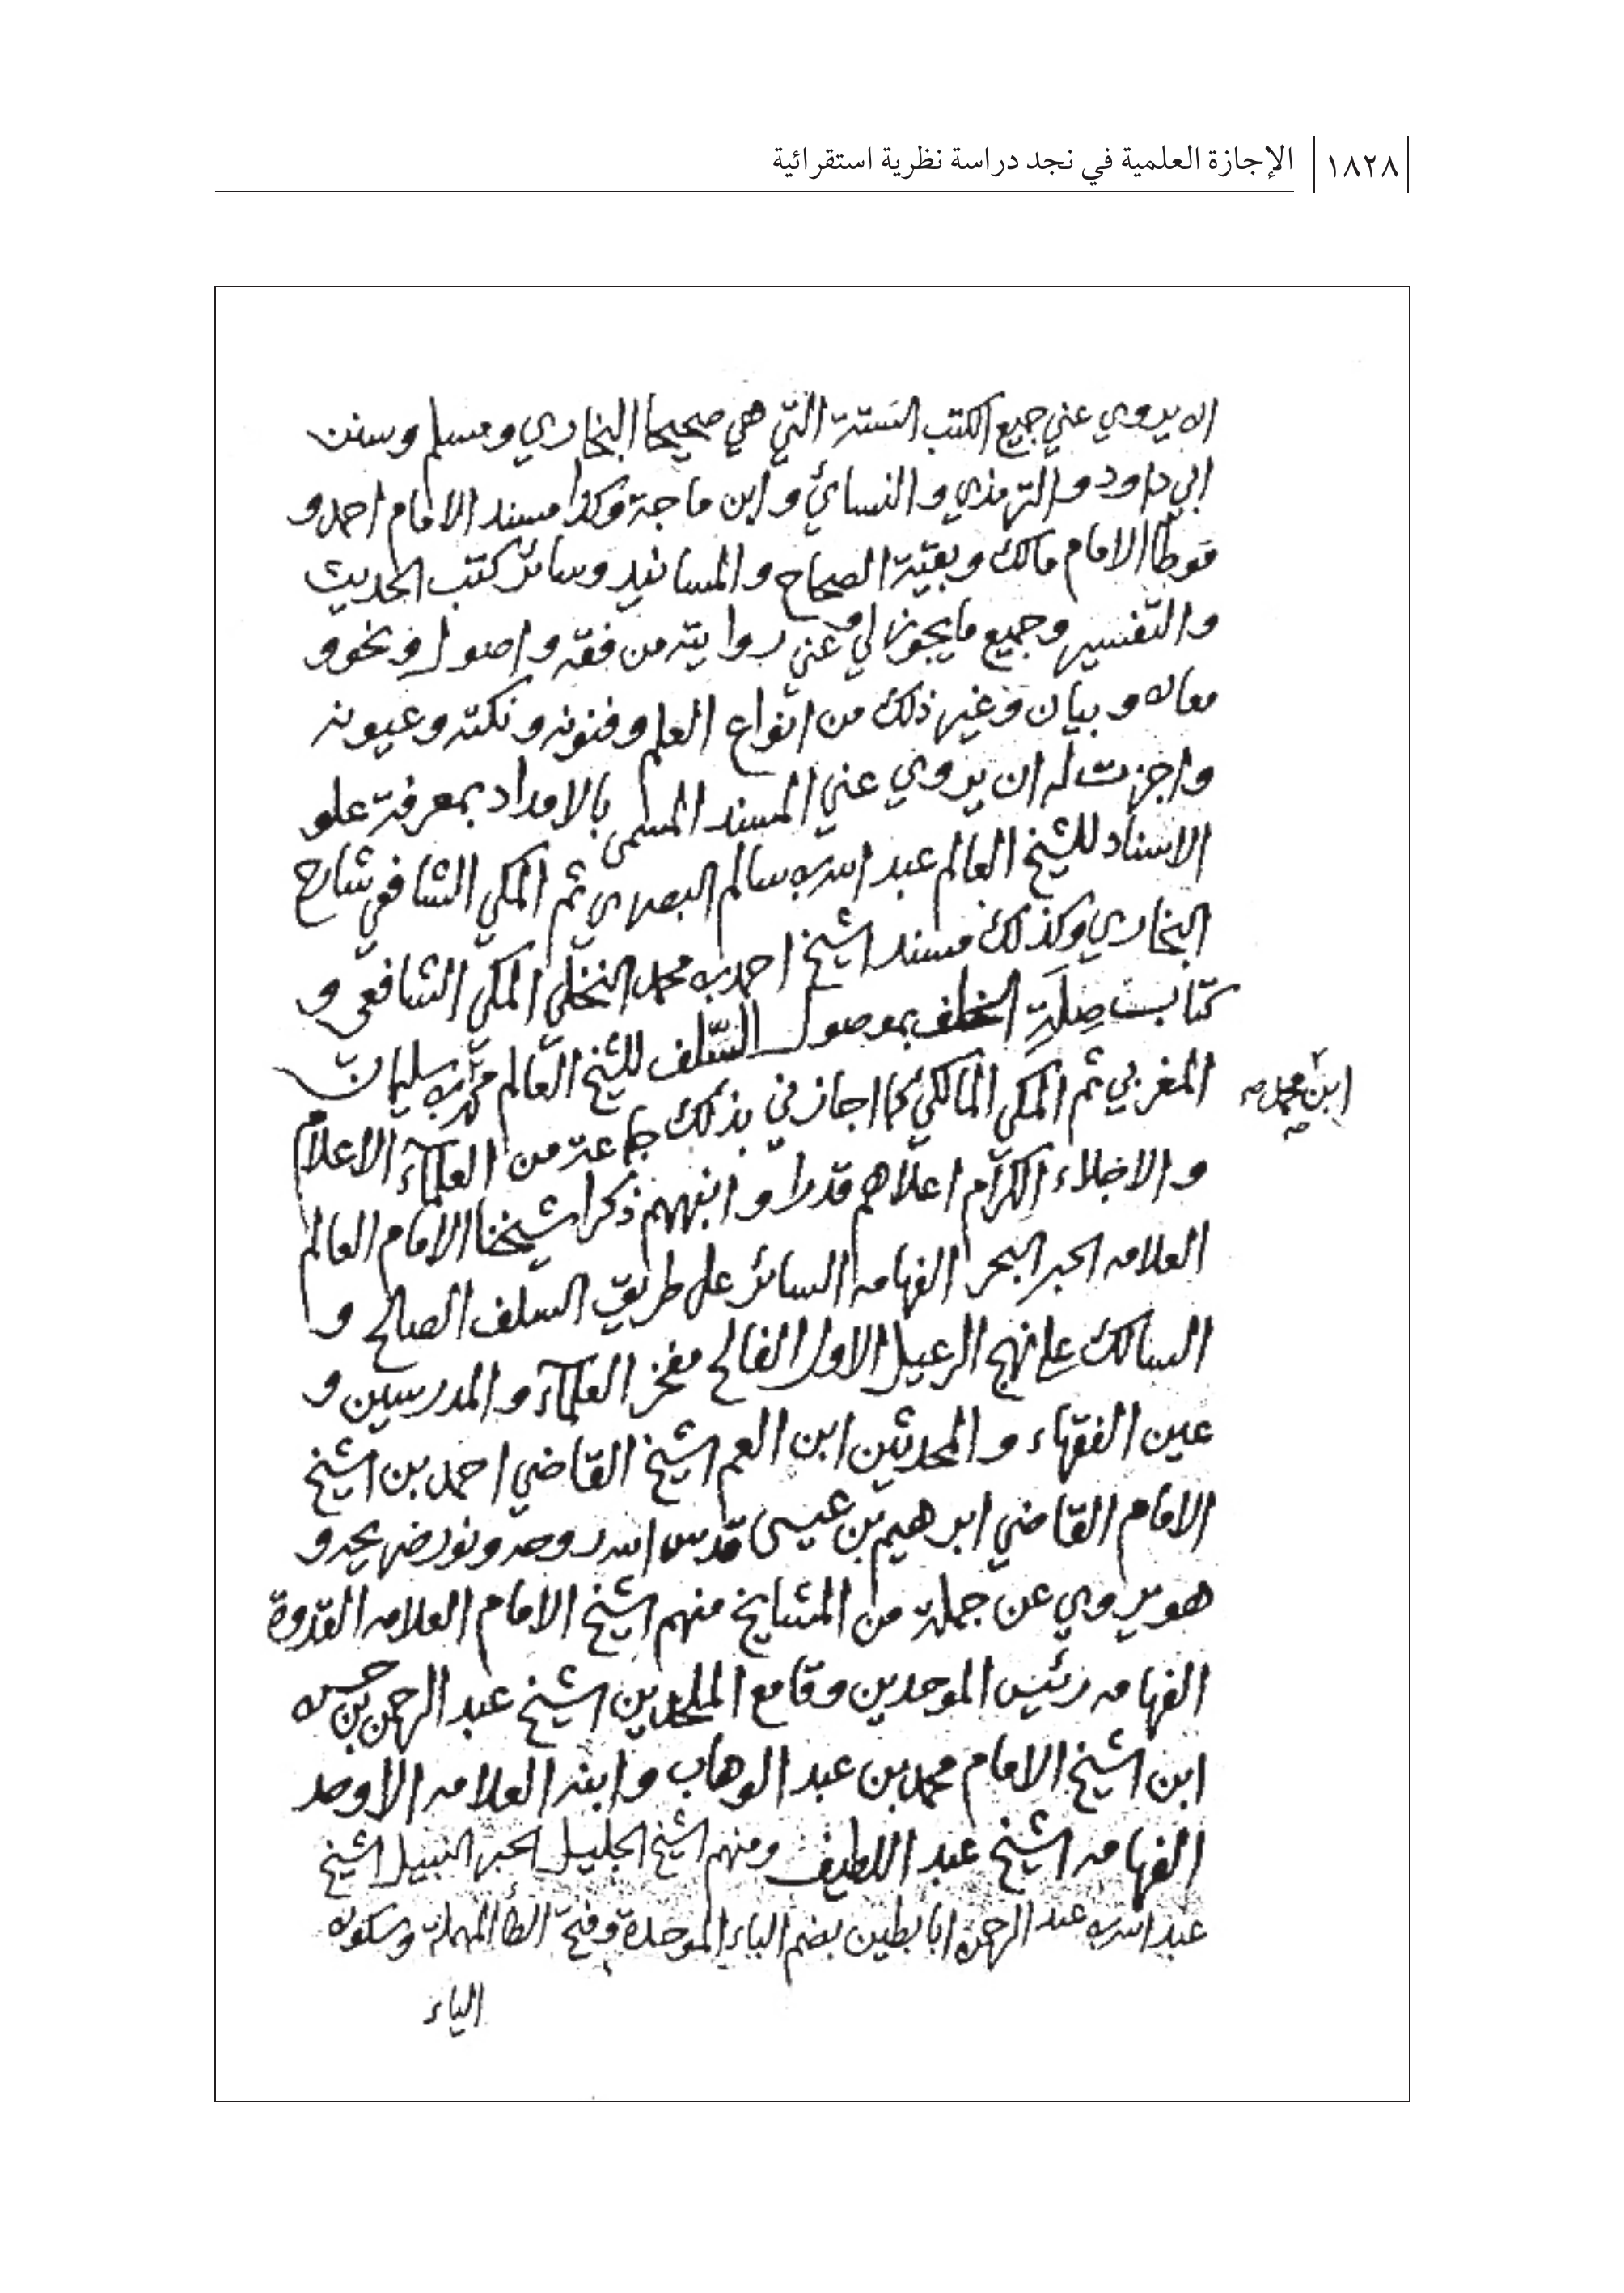 ١٨٢٨ الإجازة العلمية في نجد دراسة نظرية استقرائية
ان يروي عني جميع الكتب الستة التي هي صحيحا البخاري ومسلم وسنن
ابي داود والترمذي والنسائي وابن ماجة وكذا مسند الامام احمد و
موطأ الامام مالك وبقية الصحاح والمسانيد وسائر كتب الحديث
والتفسير وجميع ما يجوز لي وعني روايته من فقه واصول ونحو و
معان وبيان وغير ذلك من انواع العلم وفنونه ونكته وعيونه
واجزت له ان يروي عني المسند المسمى بالامداد بمعرفة علو
الاسناد للشيخ العالم عبد الله بن سالم البصري ثم المكي الشافعي شارح
البخاري وكذلك مسند الشيخ احمد بن محمد النخلي المكي الشافعي و
كتابت صلة الخلف بموصول السلف للشيخ العالم محمد بن سليمان
ابن محمد صح
المغربي ثم المكي المالكي كما اجازني بذلك جماعة من العلمآء الاعلام
والاجلاء الكرام اعلاهم قدرا وانبههم ذكرا شيخنا الامام العالم
العلامه الحبر البحر الفهامه السائر على طريق السلف الصالح و
السالك على نهج الرعيل الاول الفالح مفخر العلمآء والمدرسين و
عين الفقهاء والمحدثين ابن العم الشيخ القاضي احمد بن الشيخ
الامام القاضي ابرهيم بن عيسى قدس الله روحه ونور ضريحه و
هو يروي عن جملة من المشايخ منهم الشيخ الامام العلامه القدوة
الفهامه رئيس الموحدين وقامع الملحدين الشيخ عبد الرحمن بن حسن
ابن الشيخ الامام محمد بن عبد الوهاب وابنه العلامه الاوحد
الفهامه الشيخ عبد اللطيف ومنهم الشيخ الجليل الحبر النبيل الشيخ
عبد الله بن عبد الرحمن ابا بطين بضم الباء الموحدة وفتح الطأ المهملة وسكون
الياء